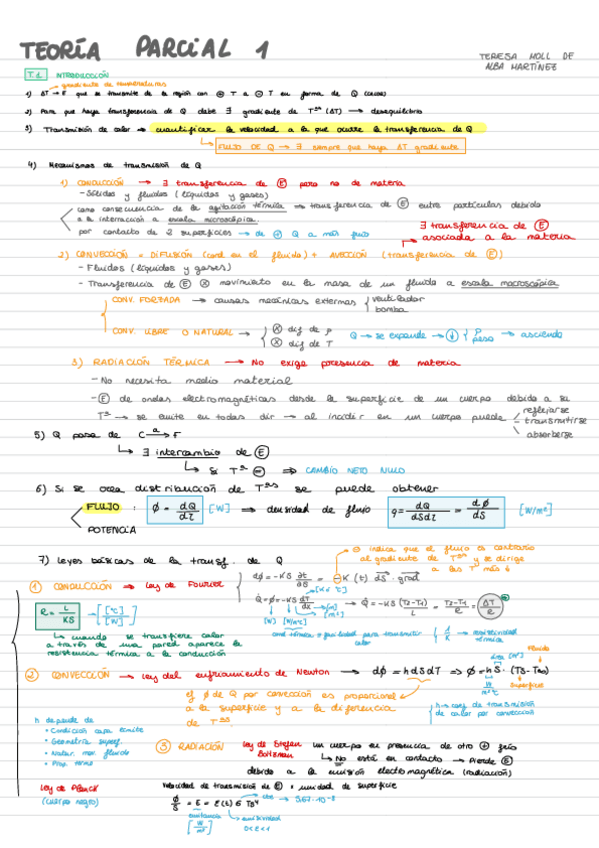 TEORÍA PARCIAL 1
TERESA MOLL DE
ALBA MARTÍNEZ
T.1 INTRODUCCIÓN
gradiente de temperaturas
1) ΔT → E que se transmite de la región con ⊕ T a ⊖ T en forma de Q (calor)
2) Para que haya transferencia de Q debe ∃ gradiente de Tᵃ (ΔT) → desequilibrio
3) Transmisión de calor → cuantificar la velocidad a la que ocurre la transferencia de Q
↳ FLUJO DE Q → ∃ siempre que haya ΔT gradiente
4) Mecanismos de transmisión de Q
1) CONDUCCIÓN → ∃ transferencia de Ⓔ pero no de materia
- Sólidos y fluidos (líquidos y gases)
como consecuencia de la agitación térmica → transferencia de Ⓔ entre partículas debido
a la interacción a escala microscópica.
por contacto de 2 superficies → de ⊕ Q a más frío
∃ transferencia de Ⓔ
asociada a la materia
2) CONVECCIÓN = DIFUSIÓN (cond en el fluido) + AVECCIÓN (transferencia de Ⓔ)
- Fluidos (líquidos y gases)
- Transferencia de Ⓔ ⊗ movimiento en la masa de un fluido a escala macroscópica
CONV. FORZADA → causas mecánicas externas { ventilador
bomba
CONV. LIBRE O NATURAL → { ⊗ dif de ρ
⊗ dif de T
Q → se expande → ↓ { ρ
peso → asciende
3) RADIACIÓN TÉRMICA → No exige presencia de materia
- No necesita medio material
- Ⓔ de ondas electromagnéticas desde la superficie de un cuerpo debido a su
Tᵃ → se emite en todas dir → al incidir en un cuerpo puede
reflejarse
transmitirse
absorberse
5) Q pasa de C → F
↳ ∃ intercambio de Ⓔ
↳ Si Tᵃ ⊜ ⇒ CAMBIO NETO NULO
6) Si se crea distribución de Tᵃˢ se puede obtener
FLUJO : ϕ = dQ/dt [W] → densidad de flujo q = dQ/dSdt = dϕ/dS [W/m²]
POTENCIA
7) Leyes básicas de la transf. de Q
⊖ indica que el flujo es contrario
al gradiente de Tᵃˢ y se dirige
a las Tᵃ más ↓
① CONDUCCIÓN → Ley de Fourier
R = L/KS → [°C]/[W]
↳ cuando se transfiere calor
a través de una pared aparece la
resistencia térmica a la conducción
② CONVECCIÓN → Ley del enfriamiento de Newton → dϕ = h dS dT ⇒ ϕ = h S · (Ts - T∞)
Fluido
Superficie
el ϕ de Q por convección es proporcional
a la superficie y a la diferencia
de Tᵃˢ.
h → coef de transmisión
de calor por convección
h depende de
• Condición capa límite
• Geometría superf.
• Natur. mov. fluido
• Prop. termo
③ RADIACIÓN Ley de Stefan Boltzman un cuerpo en presencia de otro ⊕ frío
↳ No está en contacto → Pierde Ⓔ
debido a la emisión electromagnética (radiación)
Ley de Planck
(cuerpo negro)
Velocidad de transmisión de Ⓔ × unidad de superficie
cte → 5,67·10⁻⁸
emitancia
[W/m²]
emisividad
0<ε<1